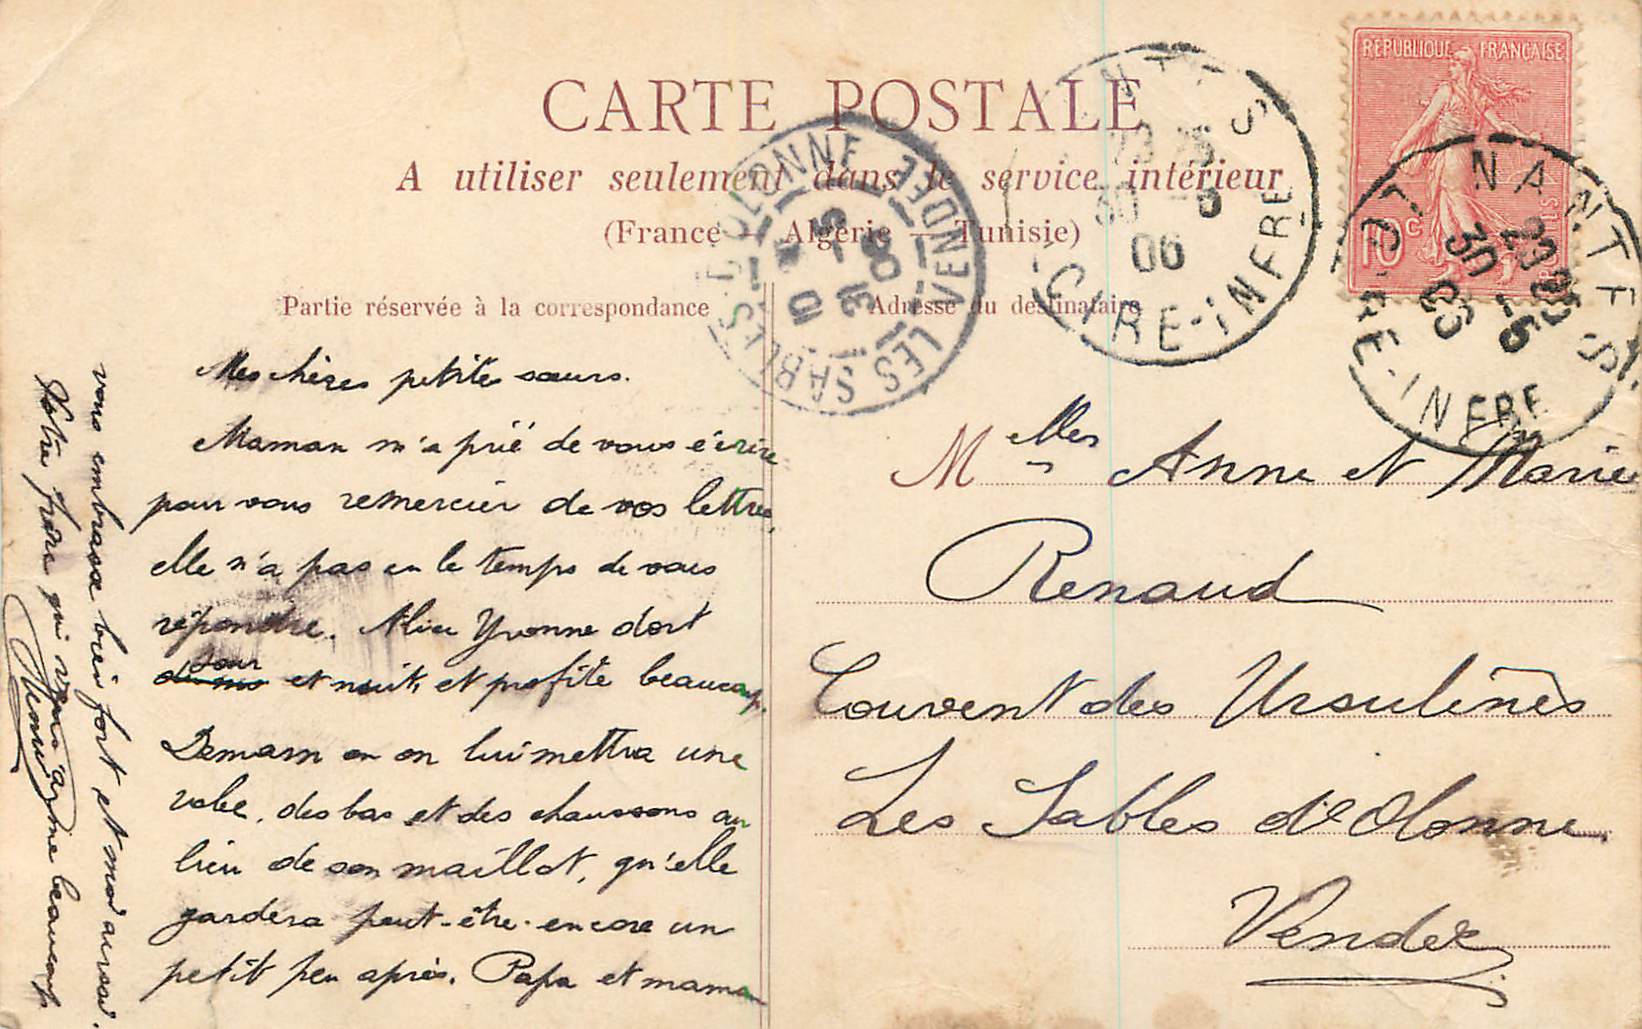 CARTE POSTALE
A utiliser seulement dans le service intérieur
(France — Algérie — Tunisie)
Partie réservée à la correspondance
Adresse du destinataire
REPUBLIQUE FRANÇAISE
10 c
POSTES
NANTES
LOIRE-INFRE
23 25
30 -5
06
NANTES
LOIRE-INFRE
23 25
30 -5
06
LES SABLES-D'OLONNE
VENDEE
10
31 -5
06
Mes chères petites sœurs.
Maman m'a prié de vous écrire
pour vous remercier de vos lettres,
elle n'a pas eu le temps de vous
répondre. Yvonne dort
jour
et nuit, et profite beaucoup.
Demain on lui mettra une
robe, des bas et des chaussons au
lieu de son maillot, qu'elle
gardera peut-être encore un
petit peu après. Papa et maman
vous embrasse bien fort et moi aussi.
Votre frère qui vous aime beaucoup
Henri
Mlles Anne et Marie
Renaud
Couvent des Ursulines
Les Sables d'Olonne.
Vendée